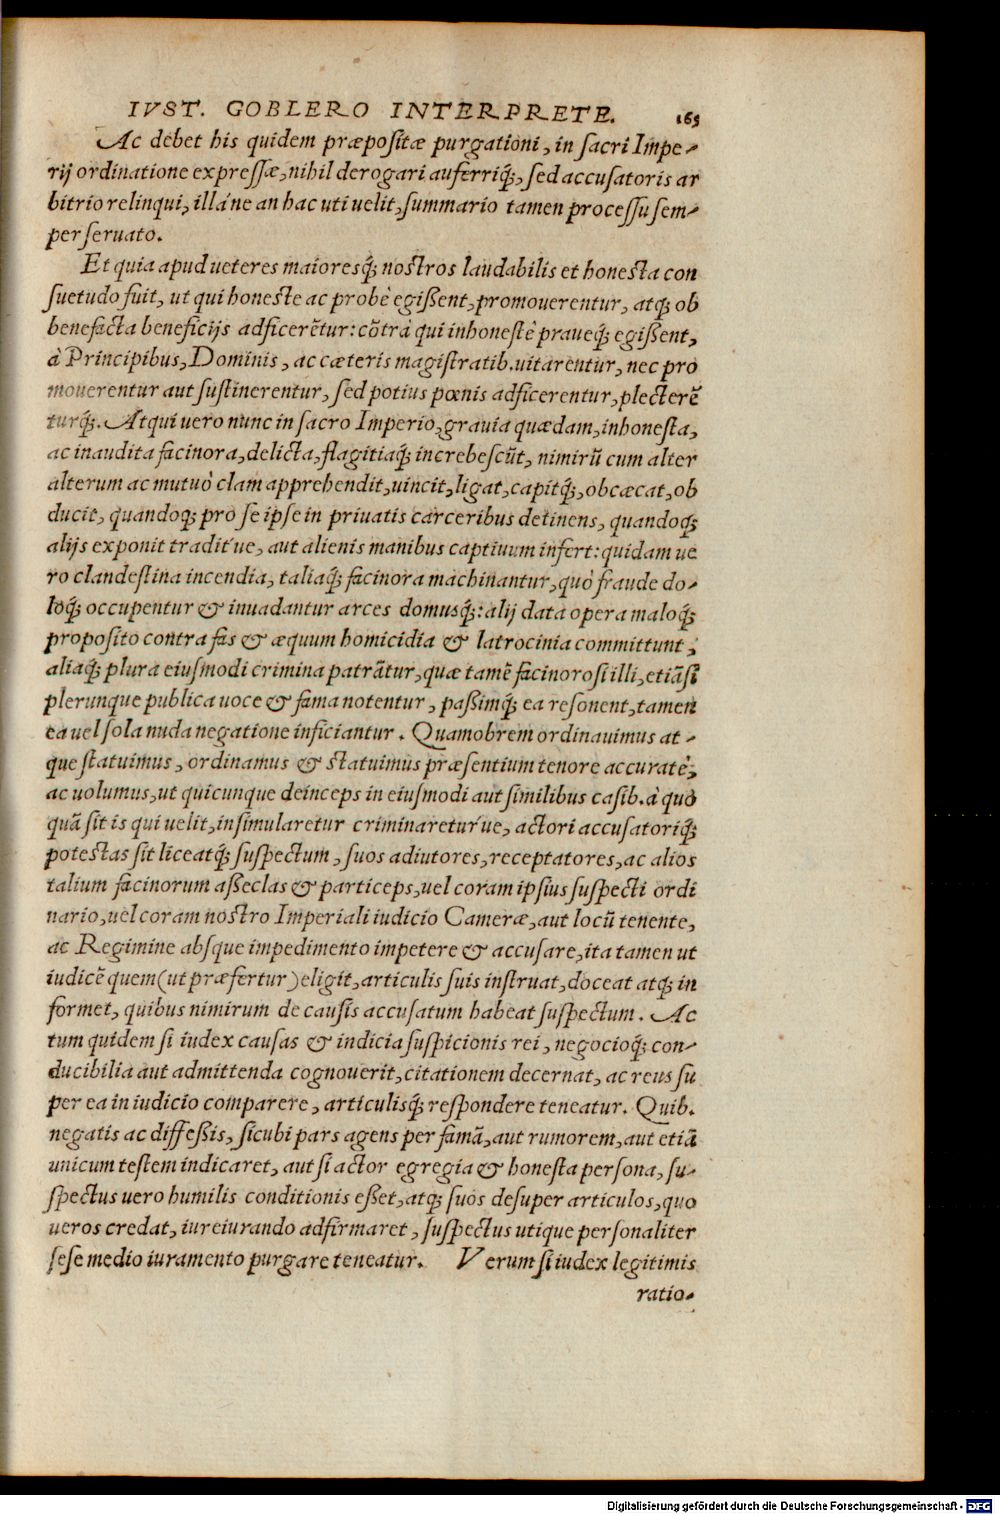 IVST. GOBLERO INTERPRETE. 165
Ac debet his quidem præpositæ purgationi, in sacri Impe-
rij ordinatione expressæ, nihil derogari auferriq́;, sed accusatoris ar
bitrio relinqui, illá'ne an hac uti uelit, summario tamen processu sem-
per seruato.
Et quia apud ueteres maioresq́; nostros laudabilis et honesta con
suetudo fuit, ut qui honeste ac probè egißent, promouerentur, atq; ob
benefacta beneficijs adficerẽtur: cõtrà qui inhonestè praueq́; egißent,
à Principibus, Dominis, ac cæteris magistratib. uitarentur, nec pro
mouerentur aut sustinerentur, sed potius pœnis adficerentur, plecterẽ
turq́;. Atqui uero nunc in sacro Imperio, grauia quædam, inhonesta,
ac inaudita facinora, delicta, flagitiaq́; increbescũt, nimirũ cum alter
alterum ac mutuò clam apprehendit, uincit, ligat, capitq́;, obcæcat, ob
ducit, quandoq; pro se ipse in priuatis carceribus detinens, quandoq;
alijs exponit tradit'ue, aut alienis manibus captiuum infert: quidam ue
ro clandestina incendia, taliaq́; facinora machinantur, quò fraude do-
loq́; occupentur & inuadantur arces domusq́;: alij data opera maloq́;
proposito contra fas & æquum homicidia & latrocinia committunt,
aliaq́; plura eiusmodi crimina patrãtur, quæ tamẽ facinorosi illi, etiãsi
plerunque publica uoce & fama notentur, paßimq́; ea resonent, tamen
ea uel sola nuda negatione inficiantur. Quamobrem ordinauimus at-
que statuimus, ordinamus & statuimus præsentium tenore accuratè,
ac uolumus, ut quicunque deinceps in eiusmodi aut similibus casib. à quo
quã sit is qui uelit, insimularetur criminaretur'ue, actori accusatoriq́;
potestas sit liceatq́; suspectum, suos adiutores, receptatores, ac alios
talium facinorum aßeclas & particeps, uel coram ipsius suspecti ordi
nario, uel coram nostro Imperiali iudicio Cameræ, aut locũ tenente,
ac Regimine absque impedimento impetere & accusare, ita tamen ut
iudicẽ quem (ut præfertur) eligit, articulis suis instruat, doceat atq; in
formet, quibus nimirum de causis accusatum habeat suspectum. Ac
tum quidem si iudex causas & indicia suspicionis rei, negocioq́; con-
ducibilia aut admittenda cognouerit, citationem decernat, ac reus su
per ea in iudicio comparere, articulisq́; respondere teneatur. Quib.
negatis ac diffeßis, sicubi pars agens per famã, aut rumorem, aut etiã
unicum testem indicaret, aut si actor egregia & honesta persona, su-
spectus uero humilis conditionis eßet, atq; suos desuper articulos, quo
ueros credat, iureiurando adfirmaret, suspectus utique personaliter
sese medio iuramento purgare teneatur. Verum si iudex legitimis
ratio-
Digitalisierung gefördert durch die Deutsche Forschungsgemeinschaft - DFG